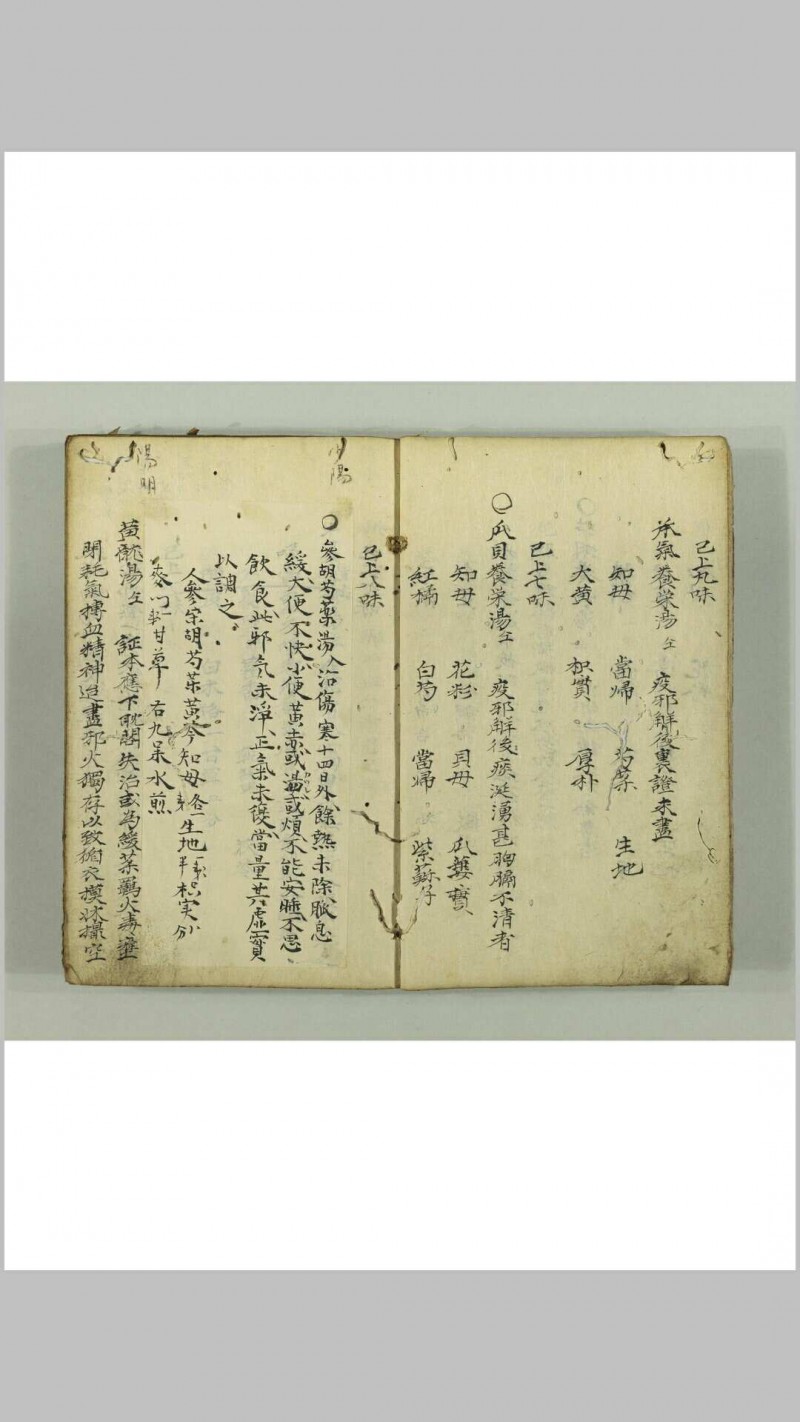 已上九味
承氣養榮湯 疫邪解後裏證未盡
知母 當歸 芍藥 生地
大黃 枳實 厚朴
已上七味
〇瓜貝養榮湯 疫邪解後痰涎湧甚胸膈不清者
知母 花粉 貝母 瓜蔞實
紅橘 白芍 當歸 紫蘇仔
已上八味
少陽
〇參胡芍藥湯入 治傷寒十四日外餘熱未除脈息
緩大便不快小便黃赤或渴或煩不能安睡不思
飲食此邪气未淨正氣未復當量其虛實
以調之
人參柴胡芍茱黃芩知母各一生地半枳実分
麥门甘草 右九呆水煎
陽明
黃龍湯 証本應下耽閣失治或為緩茱羈火毒壅
閉耗氣搏血精神迨盡邪火獨存以致循衣摸床撮空